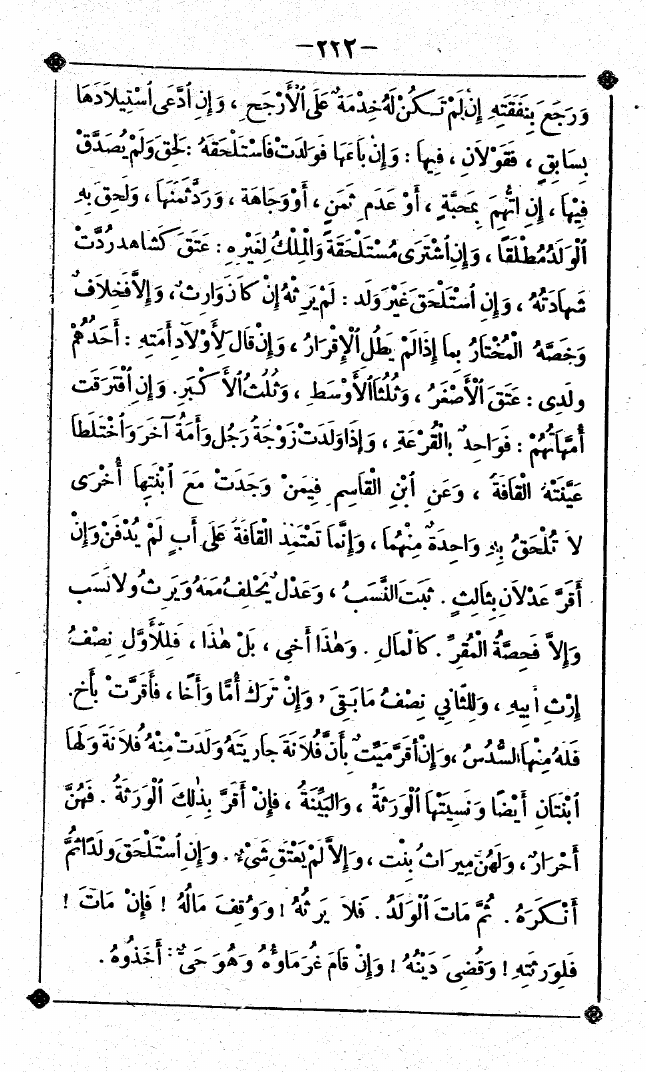 -٢٢٢-
وَرَجَعَ بِنَفَقَتِهِ إِنْ لَمْ تَكُنْ لَهُ خِدْمَةٌ عَلَى ٱلْأَرْجَحِ ، وَإِنِ ٱدَّعَى ٱسْتِيلَادَهَا
بِسَابِقٍ ، فَقَوْلَانِ ، فِيهَا : وَإِنْ بَاعَهَا فَوَلَدَتْ فَٱسْتَلْحَقَهُ : لَحِقَ وَلَمْ يُصَدَّقْ
فِيهَا ، إِنِ ٱتُّهِمَ بِمَحَبَّةٍ ، أَوْ عَدَمِ ثَمَنٍ ، أَوْ وَجَاهَة ، وَرَدَّ ثَمَنَهَا ، وَلَحِقَ بِهِ
ٱلْوَلَدُ مُطْلَقًا ، وَإِنِ ٱشْتَرَى مُسْتَلْحَقَهُ وَٱلْمِلْكُ لِغَيْرِهِ : عَتَقَ كَشَاهِد رُدَّتْ
شَهَادَتُهُ ، وَإِنِ ٱسْتَلْحَقَ غَيْرَ وَلَد : لَمْ يَرِثْهُ إِنْ كَانَ وَارِثٌ ، وَإِلَّا فَخِلَافٌ
وَخَصَّهُ الْمُخْتَارُ بِمَا إِذَا لَمْ يَطُلِ ٱلْإِقْرَارُ ، وَإِنْ قَالَ لِأَوْلَادِ أَمَتِهِ : أَحَدُهُمْ
وَلَدِى : عَتَقَ ٱلْأَصْغَرُ ، وَثُلُثَا ٱلْأَوْسَطِ ، وَثُلُثُ ٱلْأَكْبَرِ. وَإِنِ ٱفْتَرَقَت
أُمَّهَاتُهُمْ : فَوَاحِدٌ بِٱلْقُرْعَةِ ، وَإِذَا وَلَدَتْ زَوْجَةُ رَجُل وَأَمَةُ آخَرَ وَٱخْتَلَطَا
عَيَّنَتْهُ ٱلْقَافَةُ ، وَعَنِ ٱبْنِ ٱلْقَاسِمِ فِيمَنْ وَجَدَتْ مَعَ ٱبْنَتِهَا أُخْرَى
لَا تُلْحَقُ بِهِ وَاحِدَةٌ مِنْهُمَا ، وَإِنَّمَا تَعْتَمِدُ ٱلْقَافَةُ عَلَى أَبٍ لَمْ يُدْفَنْ وَإِنْ
أَقَرَّ عَدْلَانِ بِثَالِثٍ . ثَبَتَ النَّسَبُ ، وَعَدْلٌ يَحْلِفُ مَعَهُ وَيَرِثُ وَلَا نَسَب
وَإِلَّا فَحِصَّةُ ٱلْمُقِرِّ . كَٱلْمَالِ . وَهٰذَا أَخِى ، بَلْ هٰذَا ، فَلِلْأَوَّلِ نِصْفُ
إِرْثِ أَبِيهِ ، وَلِلثَّانِي نِصْفُ مَا بَقِىَ ، وَإِنْ تَرَكَ أُمًّا وَأَخًا ، فَأَقَرَّتْ بِأَخ.
فَلَهُ مِنْهَا السُّدُسُ ،وَإِنْ أَقَرَّ مَيِّتٌ بِأَنَّ فُلَانَةَ جَارِيَتَهُ وَلَدَتْ مِنْهُ فُلَانَةَ وَلَهَا
ٱبْنَتَانِ أَيْضًا وَنَسِيَتْهَا ٱلْوَرَثَةُ ، وَٱلْبَيِّنَةُ ، فَإِنْ أَقَرَّ بِذٰلِكَ ٱلْوَرَثَةُ . فَهُنَّ
أَحْرَارٌ ، وَلَهُنَّ مِيرَاثُ بِنْت ، وَإِلَّا لَمْ يَعْتِقْ شَىْءٌ . وَإِنِ ٱسْتَلْحَقَ وَلَدًا ثُمَّ
أَنْكَرَهُ . ثُمَّ مَاتَ ٱلْوَلَدُ . فَلَا يَرِثُهُ ! وَوُقِفَ مَالُهُ ! فَإِنْ مَاتَ !
فَلِوَرَثَتِهِ ! وَقُضِىَ دَيْنُهُ ! وَإِنْ قَامَ غُرَمَاؤُهُ وَهُوَ حَىٌّ : أَخَذُوهُ .